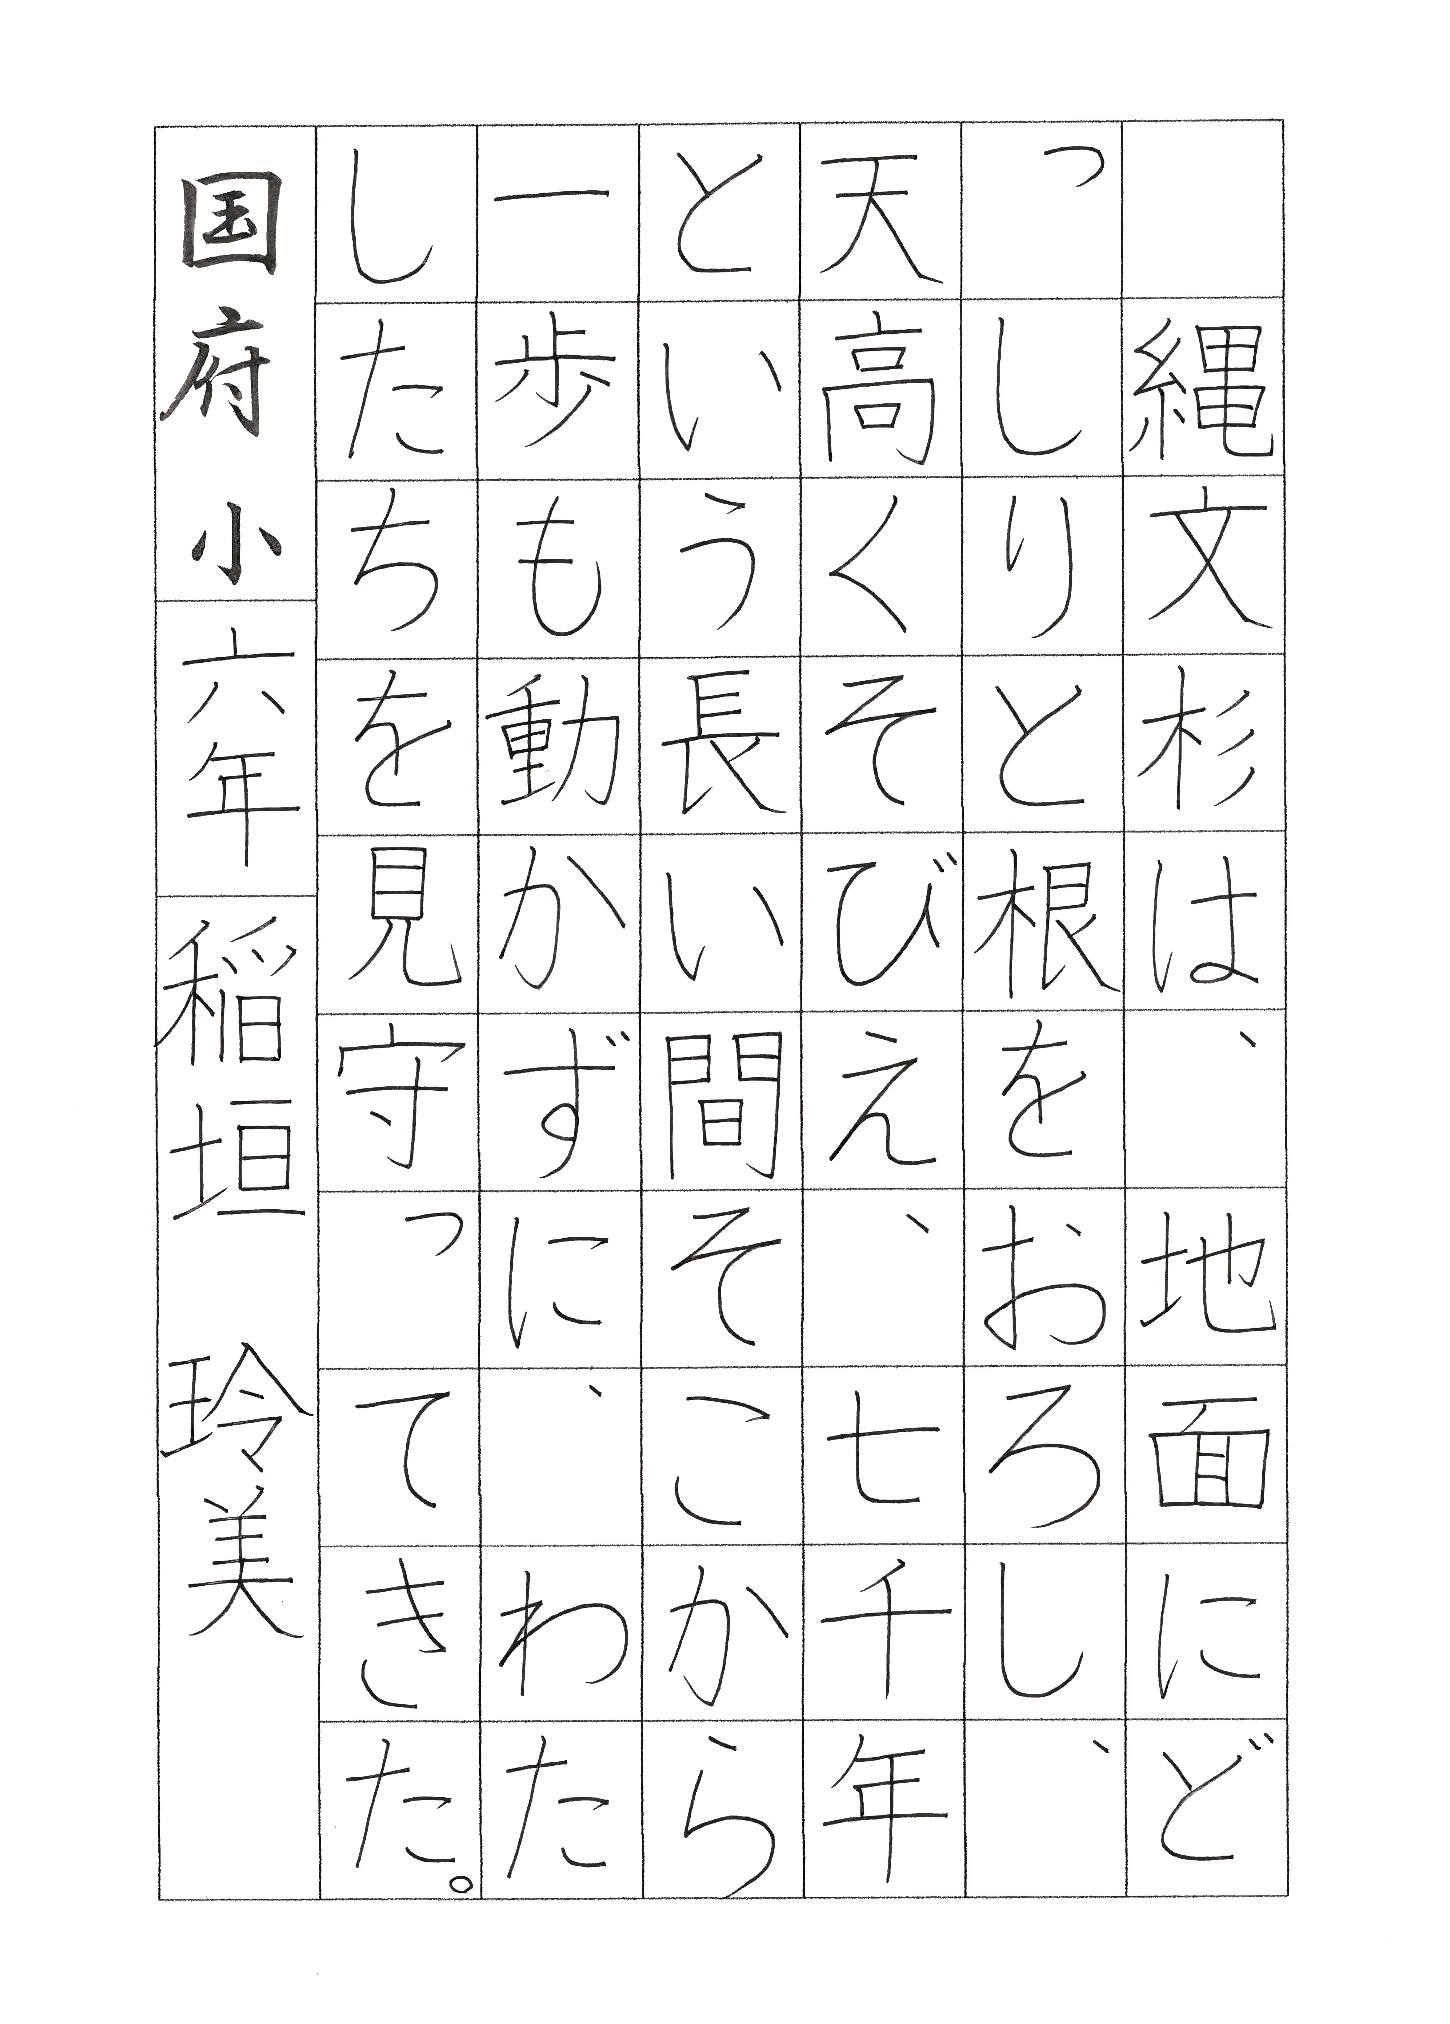 縄文杉は、地面にど
っしりと根をおろし、
天高くそびえ、七千年
という長い間そこから
一歩も動かずに、わた
したちを見守ってきた。
国府小 六年 稲垣 玲美